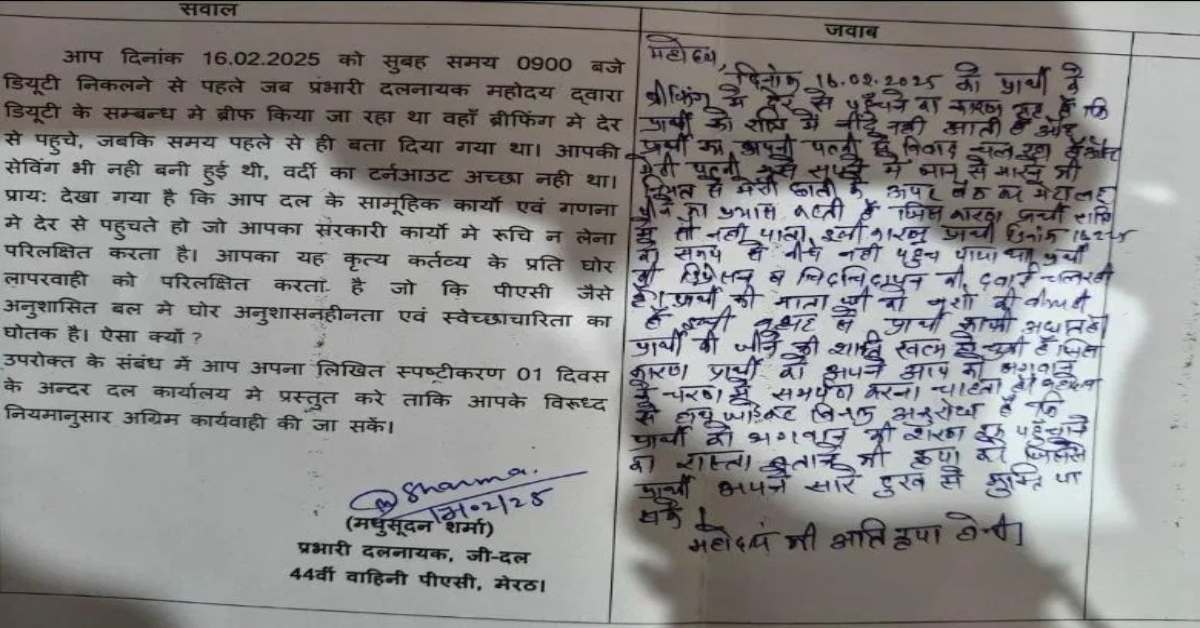 सवाल
आप दिनांक 16.02.2025 को सुबह समय 0900 बजे
डियूटी निकलने से पहले जब प्रभारी दलनायक महोदय द्वारा
डियूटी के सम्बन्ध मे ब्रीफ किया जा रहा था वहाँ ब्रीफिंग मे देर
से पहुचे, जबकि समय पहले से ही बता दिया गया था। आपकी
सेविंग भी नही बनी हुई थी, वर्दी का टर्नआउट अच्छा नही था।
प्राय: देखा गया है कि आप दल के सामूहिक कार्यो एवं गणना
मे देर से पहुचते हो जो आपका सरकारी कार्यो मे रूचि न लेना
परिलक्षित करता है। आपका यह कृत्य कर्तव्य के प्रति घोर
लापरवाही को परिलक्षित करता है जो कि पीएसी जैसे
अनुशासित बल मे घोर अनुशासनहीनता एवं स्वेच्छाचारिता का
घोतक है। ऐसा क्यों ?
उपरोक्त के संबंध में आप अपना लिखित स्पष्टीकरण 01 दिवस
के अन्दर दल कार्यालय मे प्रस्तुत करे ताकि आपके विरूध्द
नियमानुसार अग्रिम कार्यवाही की जा सकें।
Sharma
(मधुसूदन शर्मा)
प्रभारी दलनायक, जी-दल
44वीं वाहिनी पीएसी, मेरठ।
जवाब
महोदय,
दिनांक 16.02.2025 को प्रार्थी के
ब्रीफिंग मे देर से पहुँचने का कारण यह है कि
प्रार्थी को रात्रि में नींद नही आती है
प्रार्थी का अपनी पत्नी से विवाद चल रहा है
मेरी पत्नी मुझे सपने मे जान से मारने की
मेरी छाती के ऊपर बैठ कर मेरा
पीने का प्रयास करती है जिस कारण प्रार्थी रात्रि
मे सो नही पाता, इसी कारण प्रार्थी दिनांक 16.2.25
को समय से नीचे नही पहुच पाया था, प्रार्थी
की डिप्रेशन व की दवाई चल रही
है। प्रार्थी की माता जी को नशो की
प्रार्थी
प्रार्थी की जीने की खत्म हो चुकी है जिस
कारण प्रार्थी अपने आप को भगवान
के चरण मे समर्पण करना चाहता है।
से अनुरोध है कि
प्रार्थी को भगवान की शरण पहुँचाने
का रास्ता बताने की कृपा करे जिससे
प्रार्थी अपने सारे दुख से मुक्ति पा
सके।
महोदय की अति कृपा होगी।